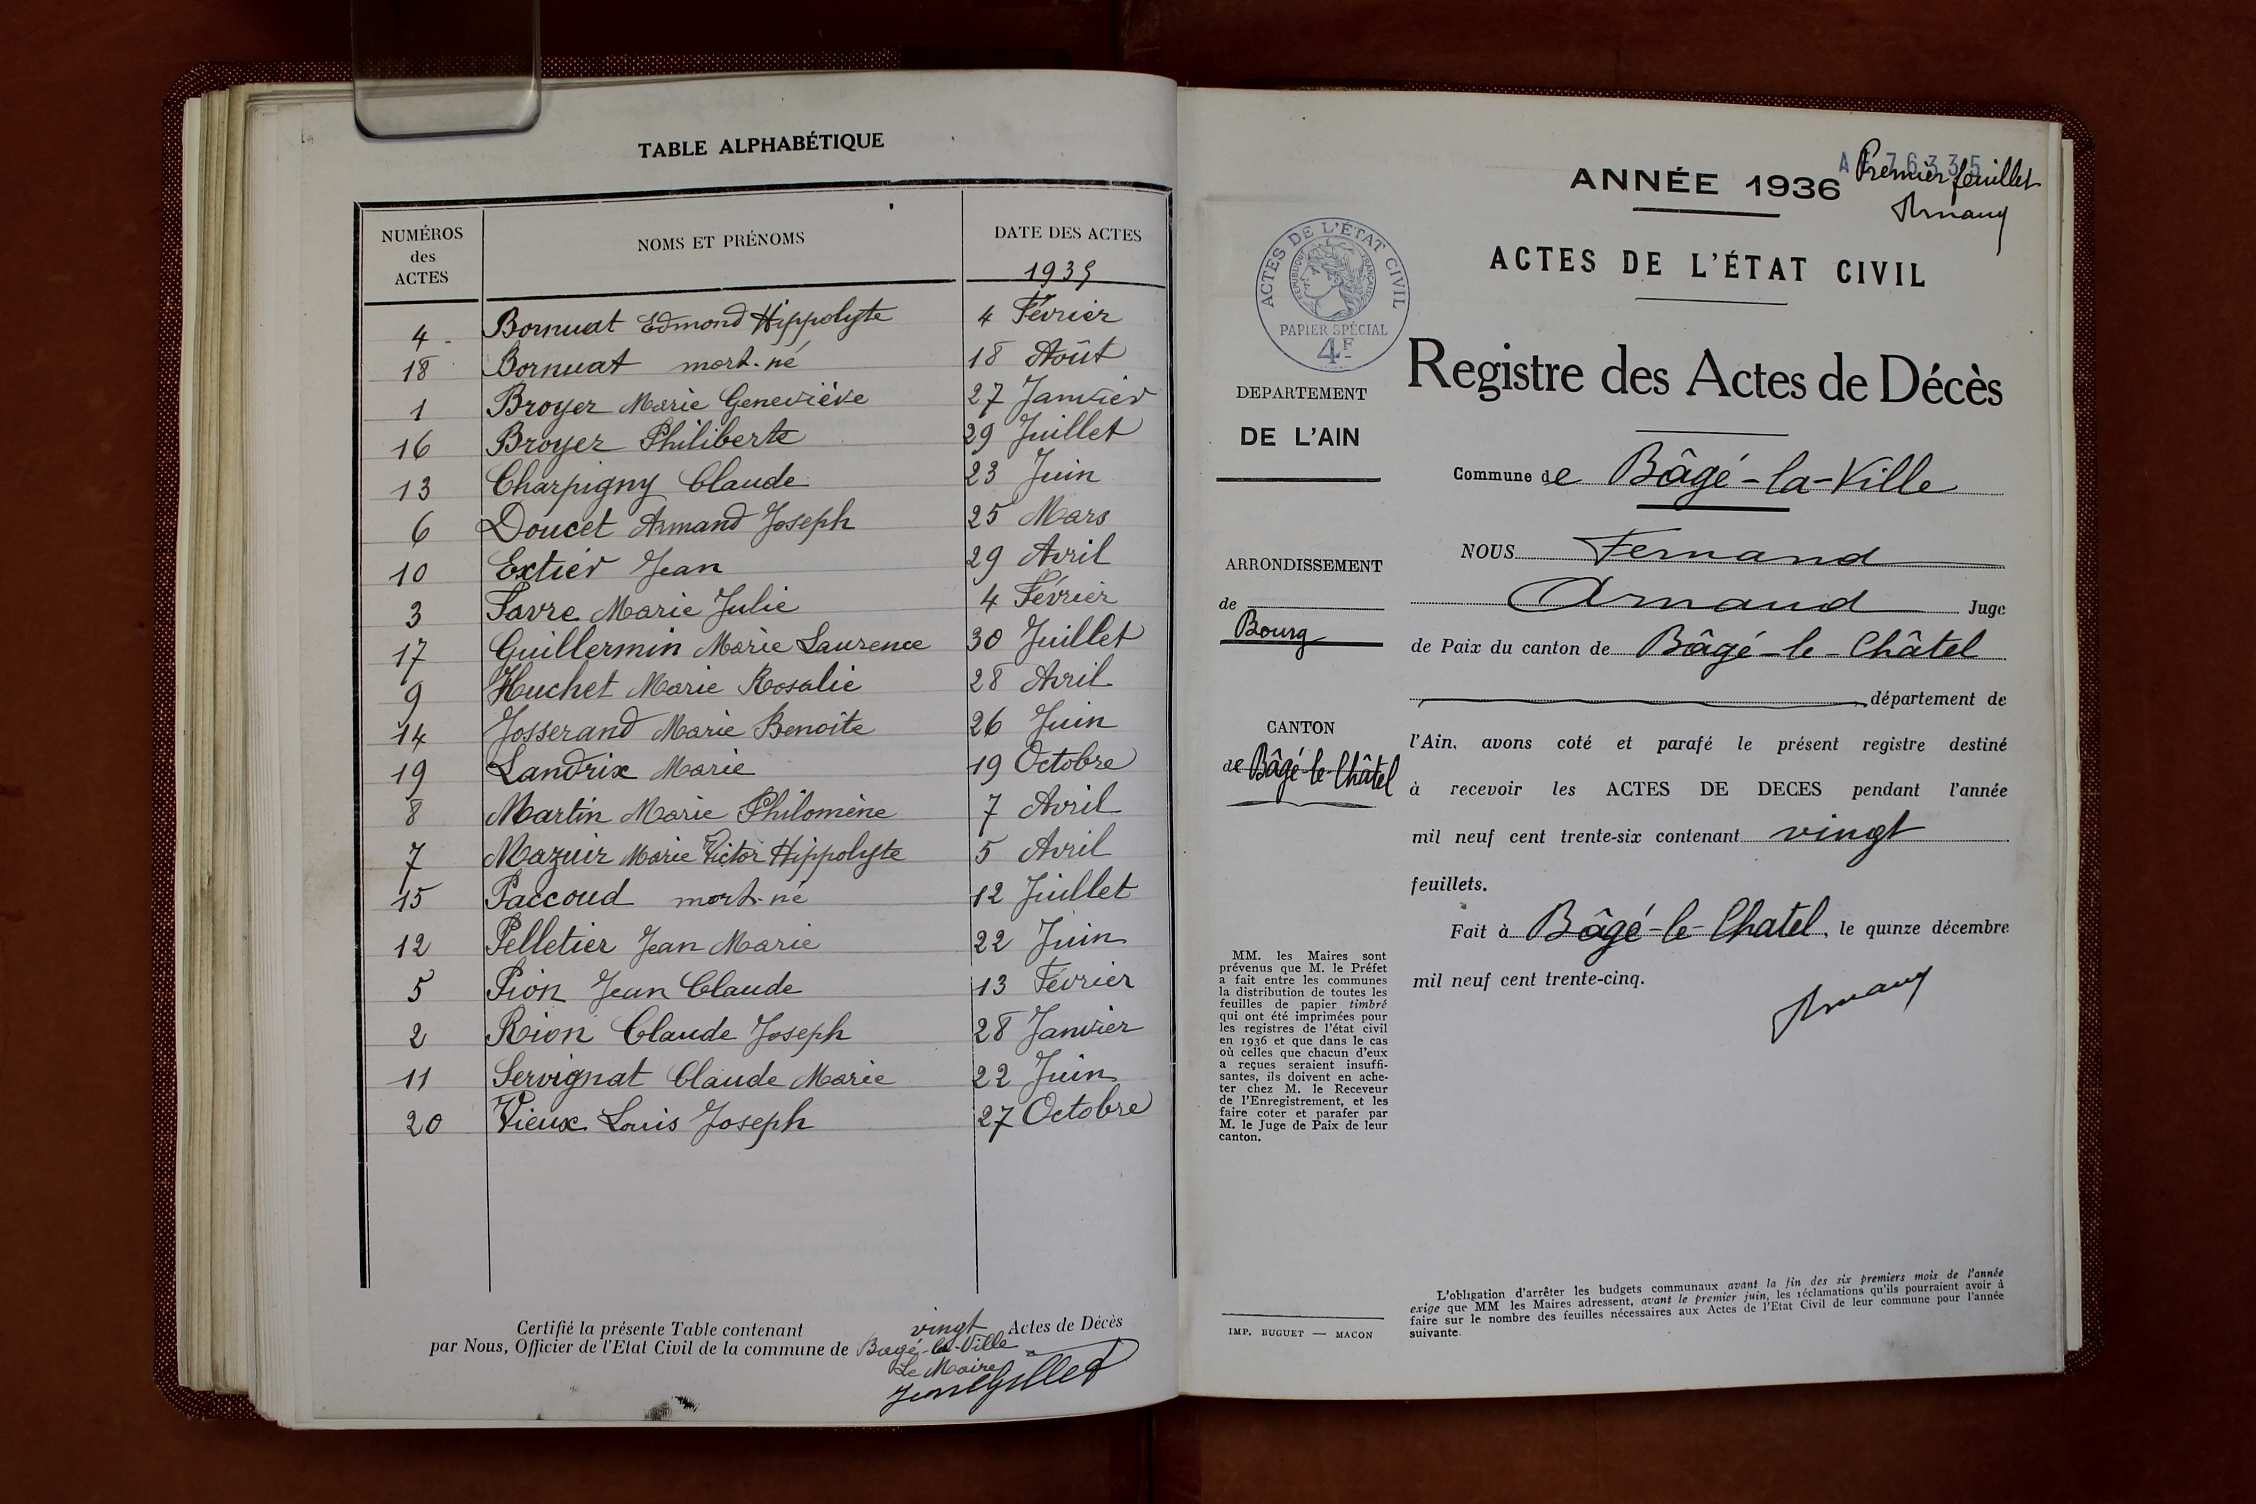 TABLE ALPHABÉTIQUE
NUMÉROS des ACTES NOMS ET PRÉNOMS DATE DES ACTES
1935
4 Bornuat Edmond Hippolyte 4 Février
18 Bornuat mort-né 18 Août
1 Broyer Marie Geneviève 27 Janvier
16 Broyer Philiberte 29 Juillet
13 Charpigny Claude 23 Juin
6 Doucet Armand Joseph 25 Mars
10 Extier Jean 29 Avril
3 Favre Marie Julie 4 Février
17 Guillermin Marie Laurence 30 Juillet
9 Huchet Marie Rosalie 28 Avril
14 Josserand Marie Benoîte 26 Juin
19 Landrix Marie 19 Octobre
8 Martin Marie Philomène 7 Avril
7 Mazuir Marie Victor Hippolyte 5 Avril
15 Paccoud mort-né 12 Juillet
12 Pelletier Jean Marie 22 Juin
5 Pion Jean Claude 13 Février
2 Rion Claude Joseph 28 Janvier
11 Servignat Claude Marie 22 Juin
20 Vieux Louis Joseph 27 Octobre
Certifié la présente Table contenant vingt Actes de Décès
par Nous, Officier de l'Etat Civil de la commune de Bagé-la-Ville
Le Maire
ANNÉE 1936
Premier feuillet
Arnaud
ACTES DE L'ÉTAT CIVIL
ACTES DE L'ÉTAT CIVIL
REPUBLIQUE FRANÇAISE
PAPIER SPÉCIAL
4F
Registre des Actes de Décès
DEPARTEMENT
DE L'AIN
ARRONDISSEMENT
de
Bourg
CANTON
de Bâgé-le-Châtel
MM. les Maires sont
prévenus que M. le Préfet
a fait entre les communes
la distribution de toutes les
feuilles de papier timbré
qui ont été imprimées pour
les registres de l'état civil
en 1936 et que dans le cas
où celles que chacun d'eux
a reçues seraient insuffi-
santes, ils doivent en ache-
ter chez M. le Receveur
de l'Enregistrement, et les
faire coter et parafer par
M. le Juge de Paix de leur
canton.
IMP. BUGUET — MACON
Commune de Bâgé-la-Ville
NOUS Fernand
Arnaud Juge
de Paix du canton de Bâgé-le-Châtel
département de
l'Ain, avons coté et parafé le présent registre destiné
à recevoir les ACTES DE DECES pendant l'année
mil neuf cent trente-six contenant vingt
feuillets.
Fait à Bâgé-le-Chatel, le quinze décembre
mil neuf cent trente-cinq.
Arnaud
L'obligation d'arrêter les budgets communaux avant la fin des six premiers mois de l'année
exige que MM les Maires adressent, avant le premier juin, les réclamations qu'ils pourraient avoir à
faire sur le nombre des feuilles nécessaires aux Actes de l'Etat Civil de leur commune pour l'année
suivante.